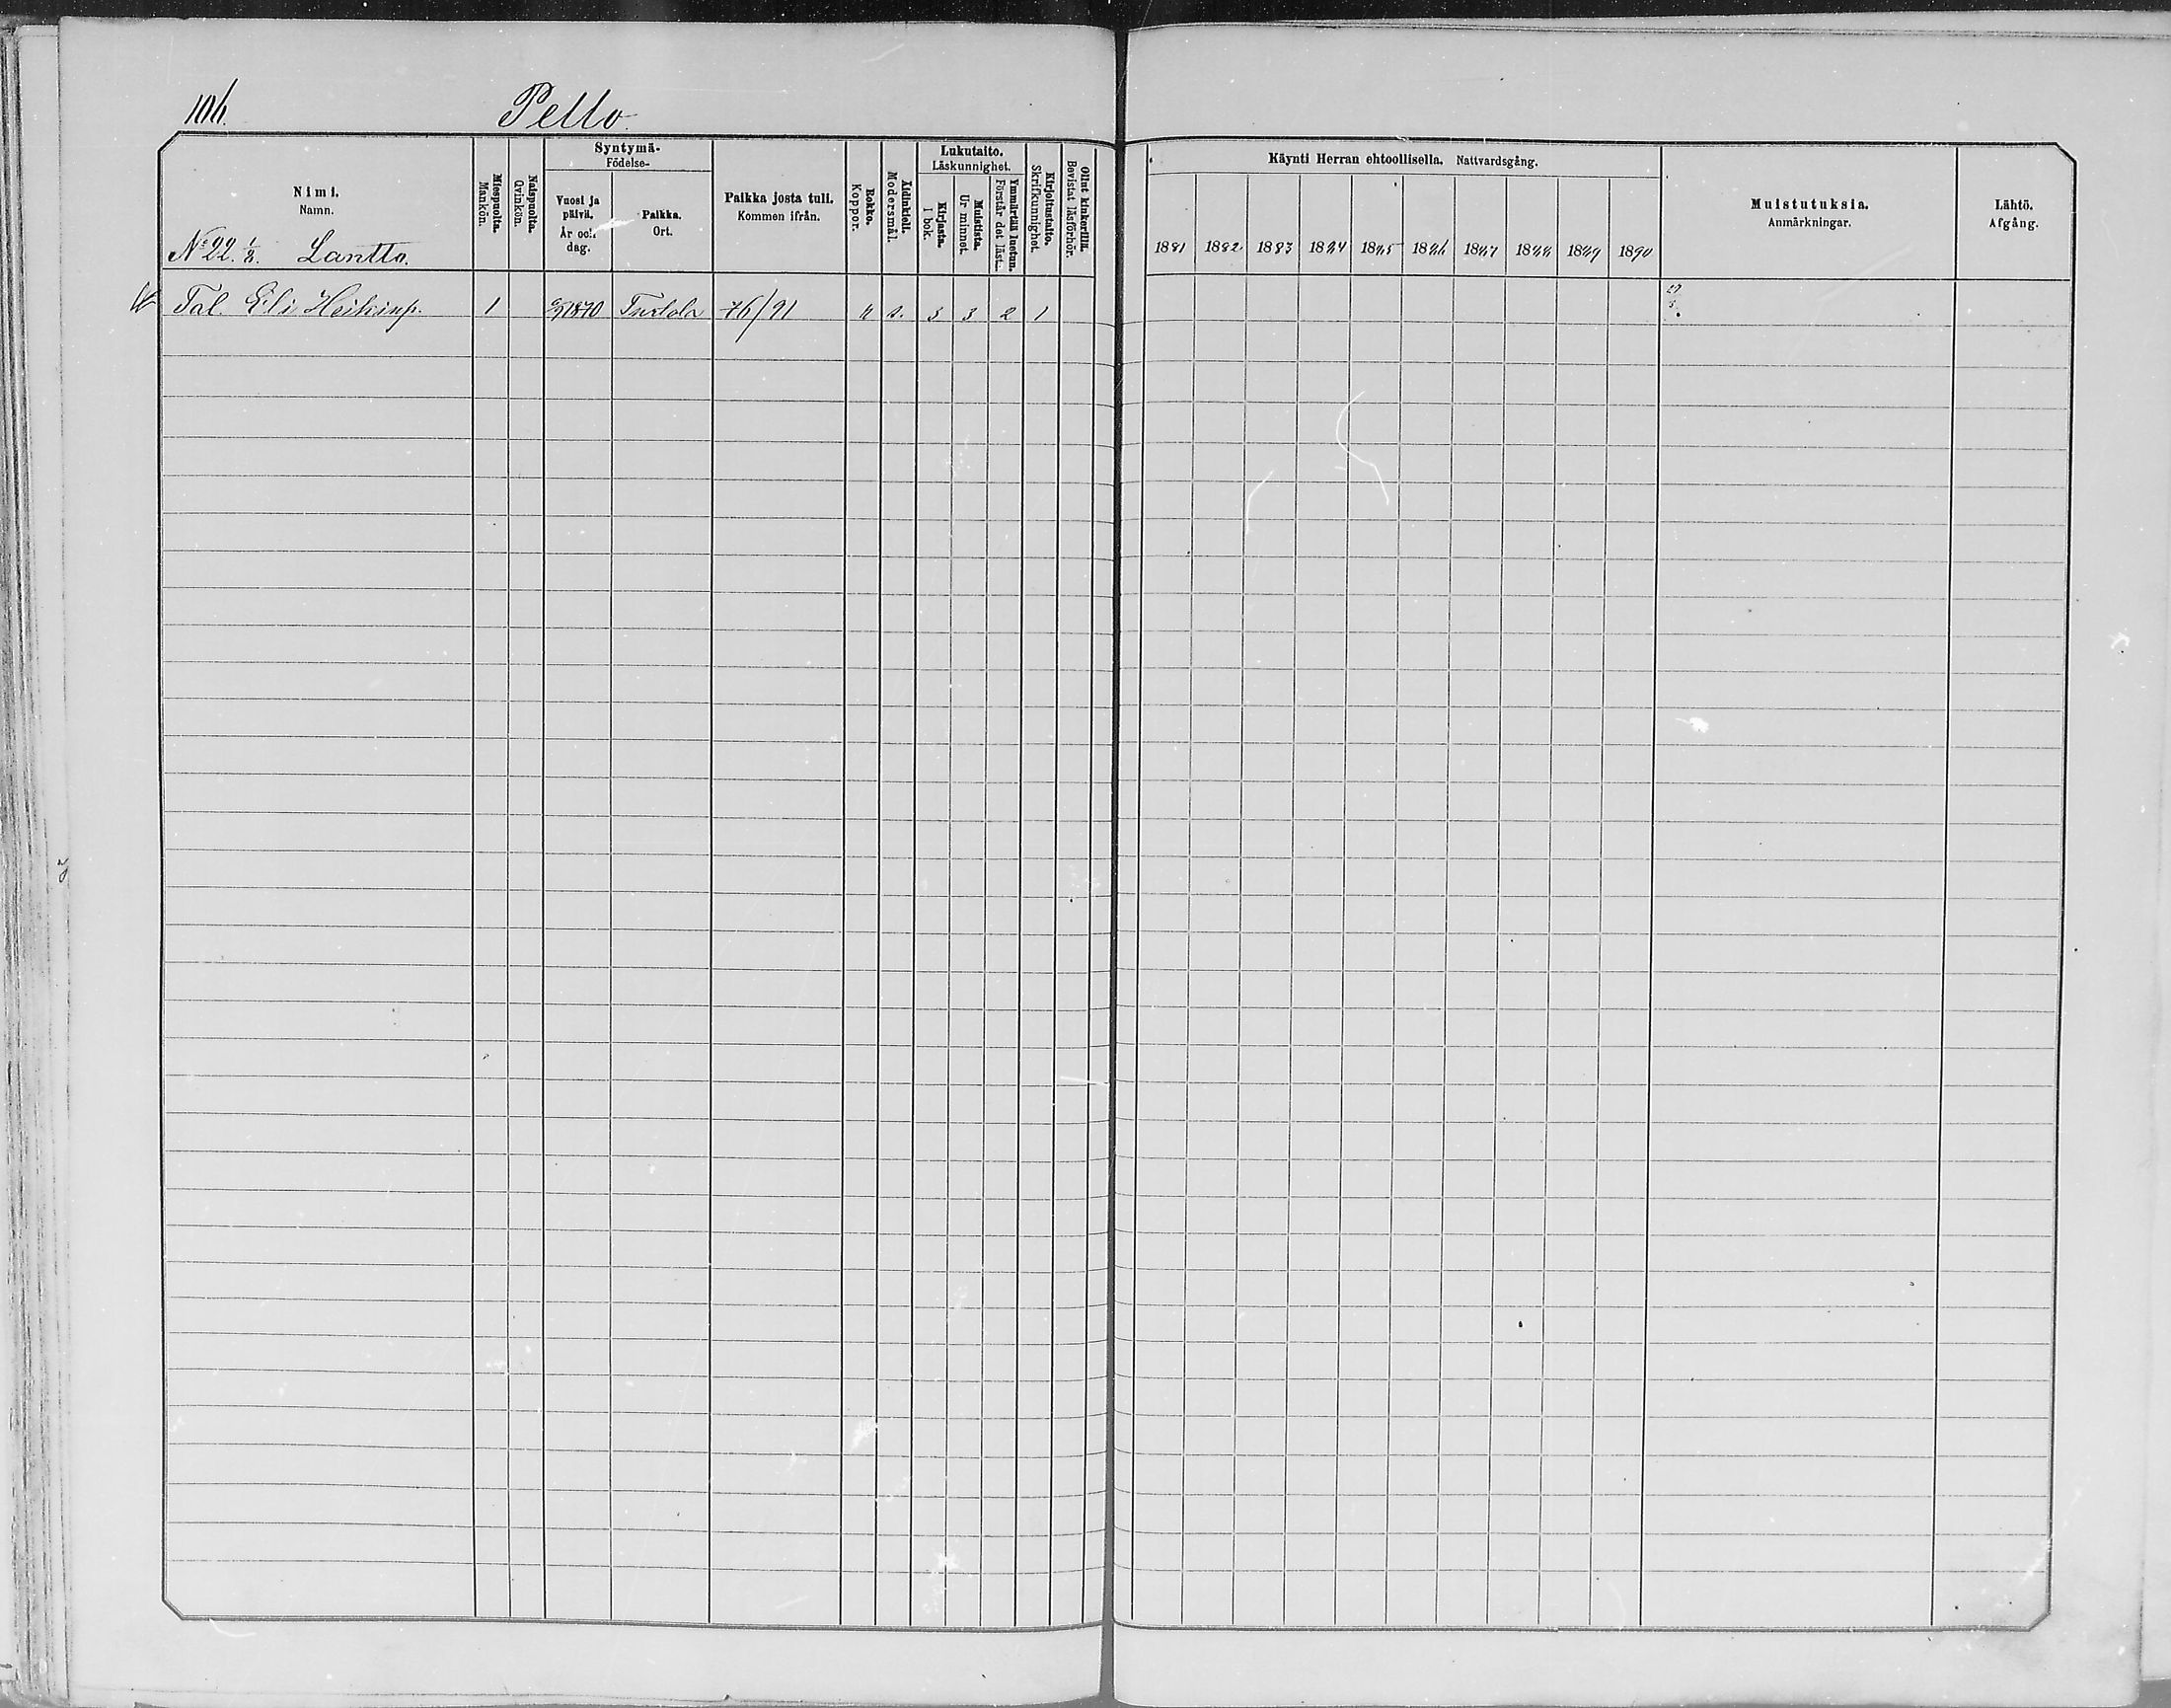 106.
Pello.
Nimi.
Namn.
Nº 22. 1/2. Lantto.
Miespuolia.
Mankön.
Naispuolia.
Qvinkön.
Syntymä-
Födelse-
Vuosi ja
päivä.
År och
dag.
Paikka.
Ort.
Paikka josta tuli.
Kommen ifrån.
Rokko.
Koppor.
Äidinkieli.
Modersmål.
Lukutaito.
Läskunnighet.
Kirjasta.
I bok.
Muistista.
Ur minnet.
Ymmärtää luetun.
Förstår det läst.
Kirjoitustaito.
Skrifkunnighet.
Ollut kinkerillä.
Bevistat läsförhör.
Käynti Herran ehtoollisella. Nattvardsgång.
1881 1882. 1883 1884 1885 1886 1887 1888 1889 1890
Muistutuksia.
Anmärkningar.
Lähtö.
Afgång.
Tal. Eli Heikinp. 1 1840 Turtola 76/91 s. 3 3 2 1